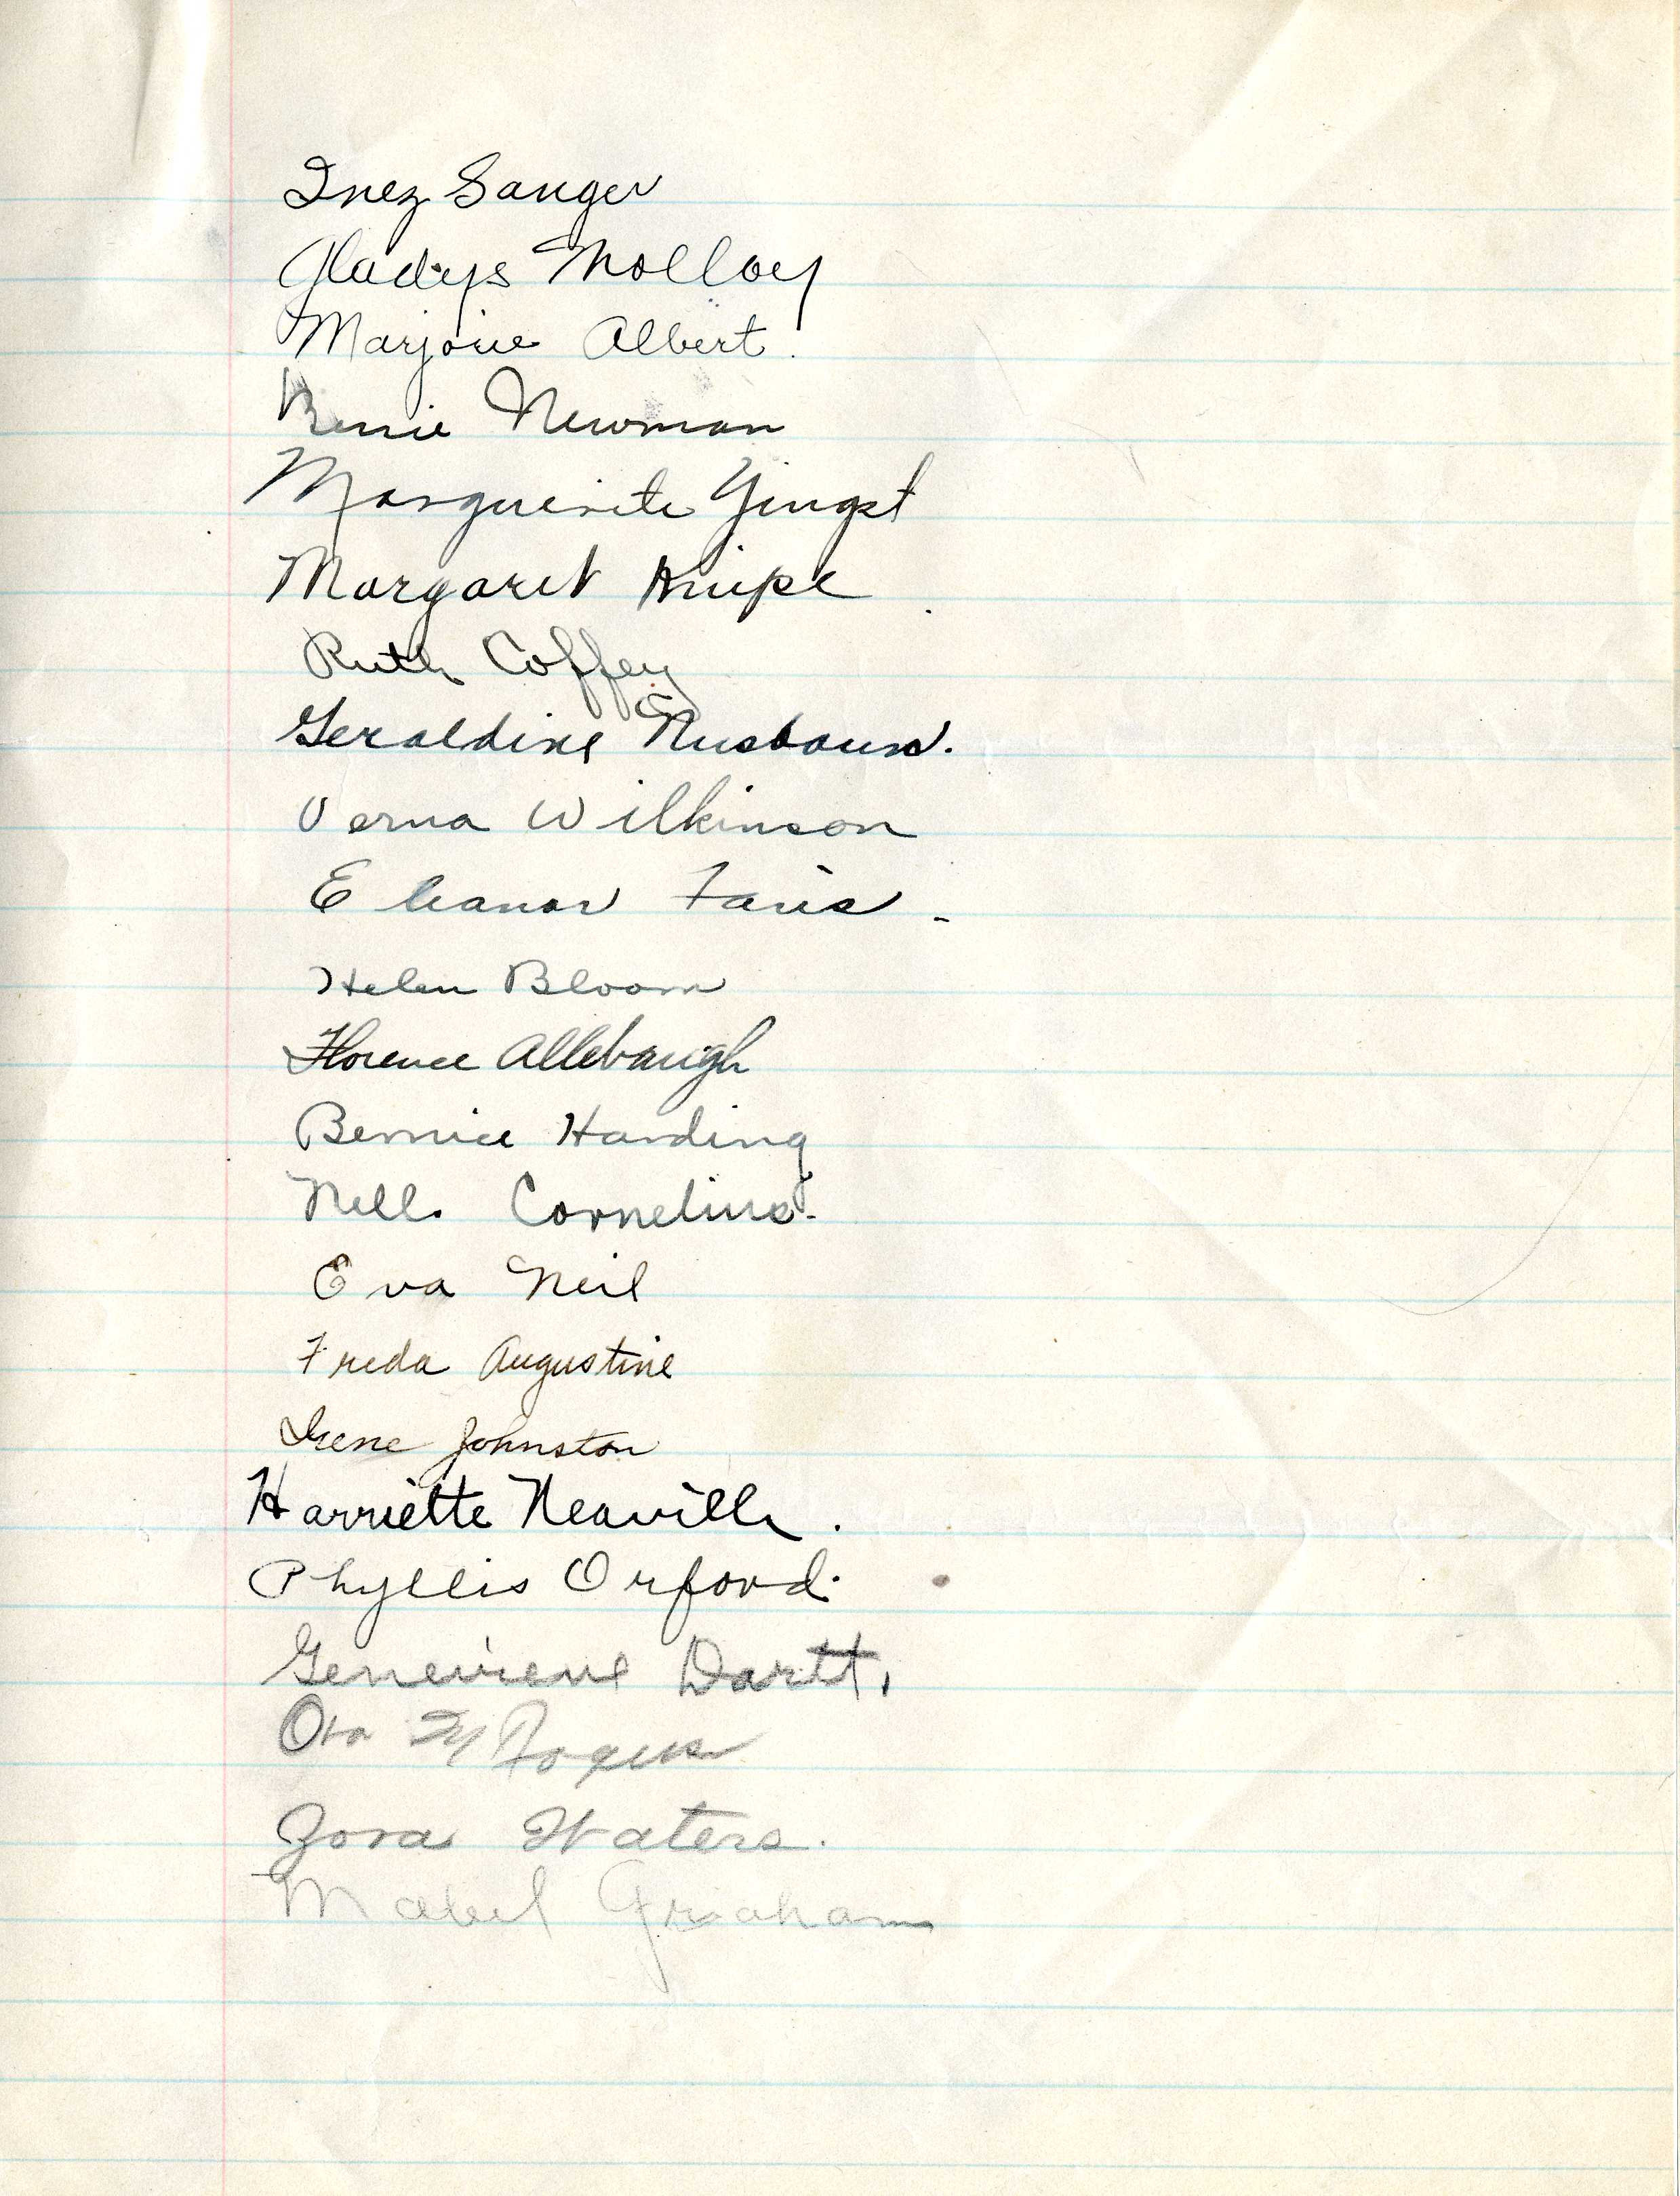 Inez Sanger
Gladys Molloy
Marjorie Albert.
Newman
Marguerite Yingst
Margaret Knipe
Ruth Coffey
Geraldine Nusbaum.
Verna Wilkinson
Eleanor Faris.
Helen Bloom
Florence Allebaugh
Bernice Harding
Nelle Cornelius.
Eva Neil
Freda Augustine
Irene Johnston
Harriette Neaville.
Phyllis Orford.
Genevieve Dartt.
Ora
Zora Waters.
Mabel Graham